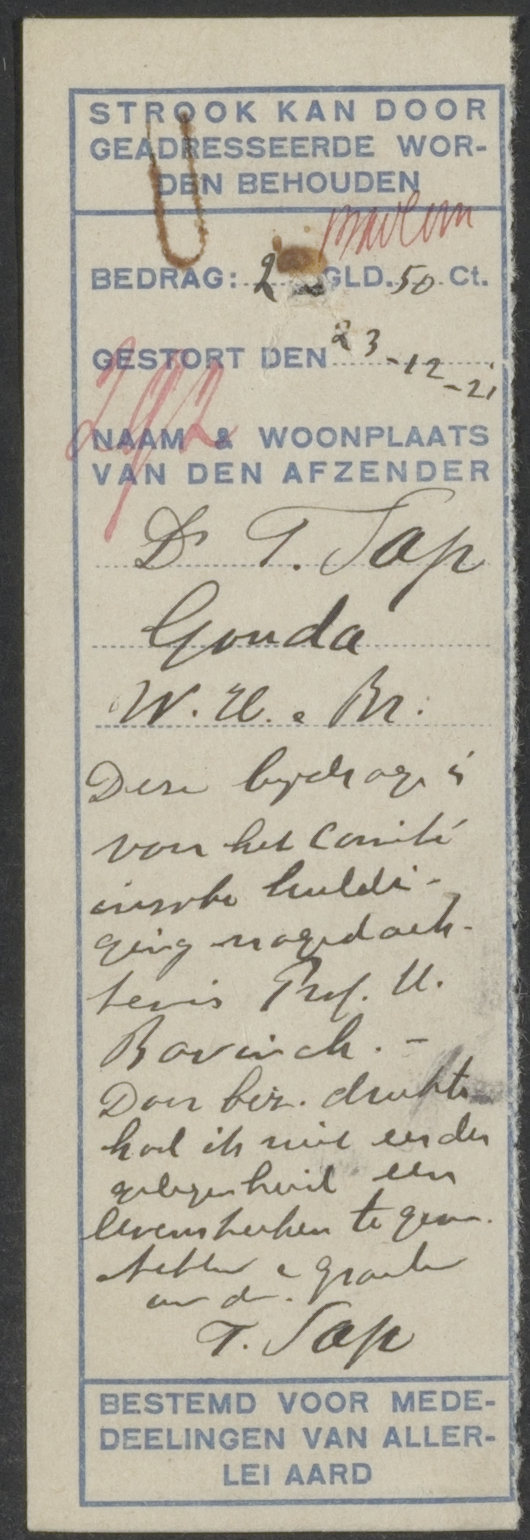 STROOK KAN DOOR
GEADRESSEERDE WOR-
DEN BEHOUDEN
BEDRAG: 2 GLD. 50 Ct.
GESTORT DEN 23-12-21
292
NAAM & WOONPLAATS
VAN DEN AFZENDER
Dr T. Sap
Gouda
W. H. e Br.
Deze bijdrage is
voor het Comité
inzake huldi-
ging nagedach-
tenis Prof. H.
Bavinck. -
Door biz. drukte
had ik niet eerder
gelegenheid een
levensteeken te geven.
Achtend e groetend
T. Sap
BESTEMD VOOR MEDE-
DEELINGEN VAN ALLER-
LEI AARD